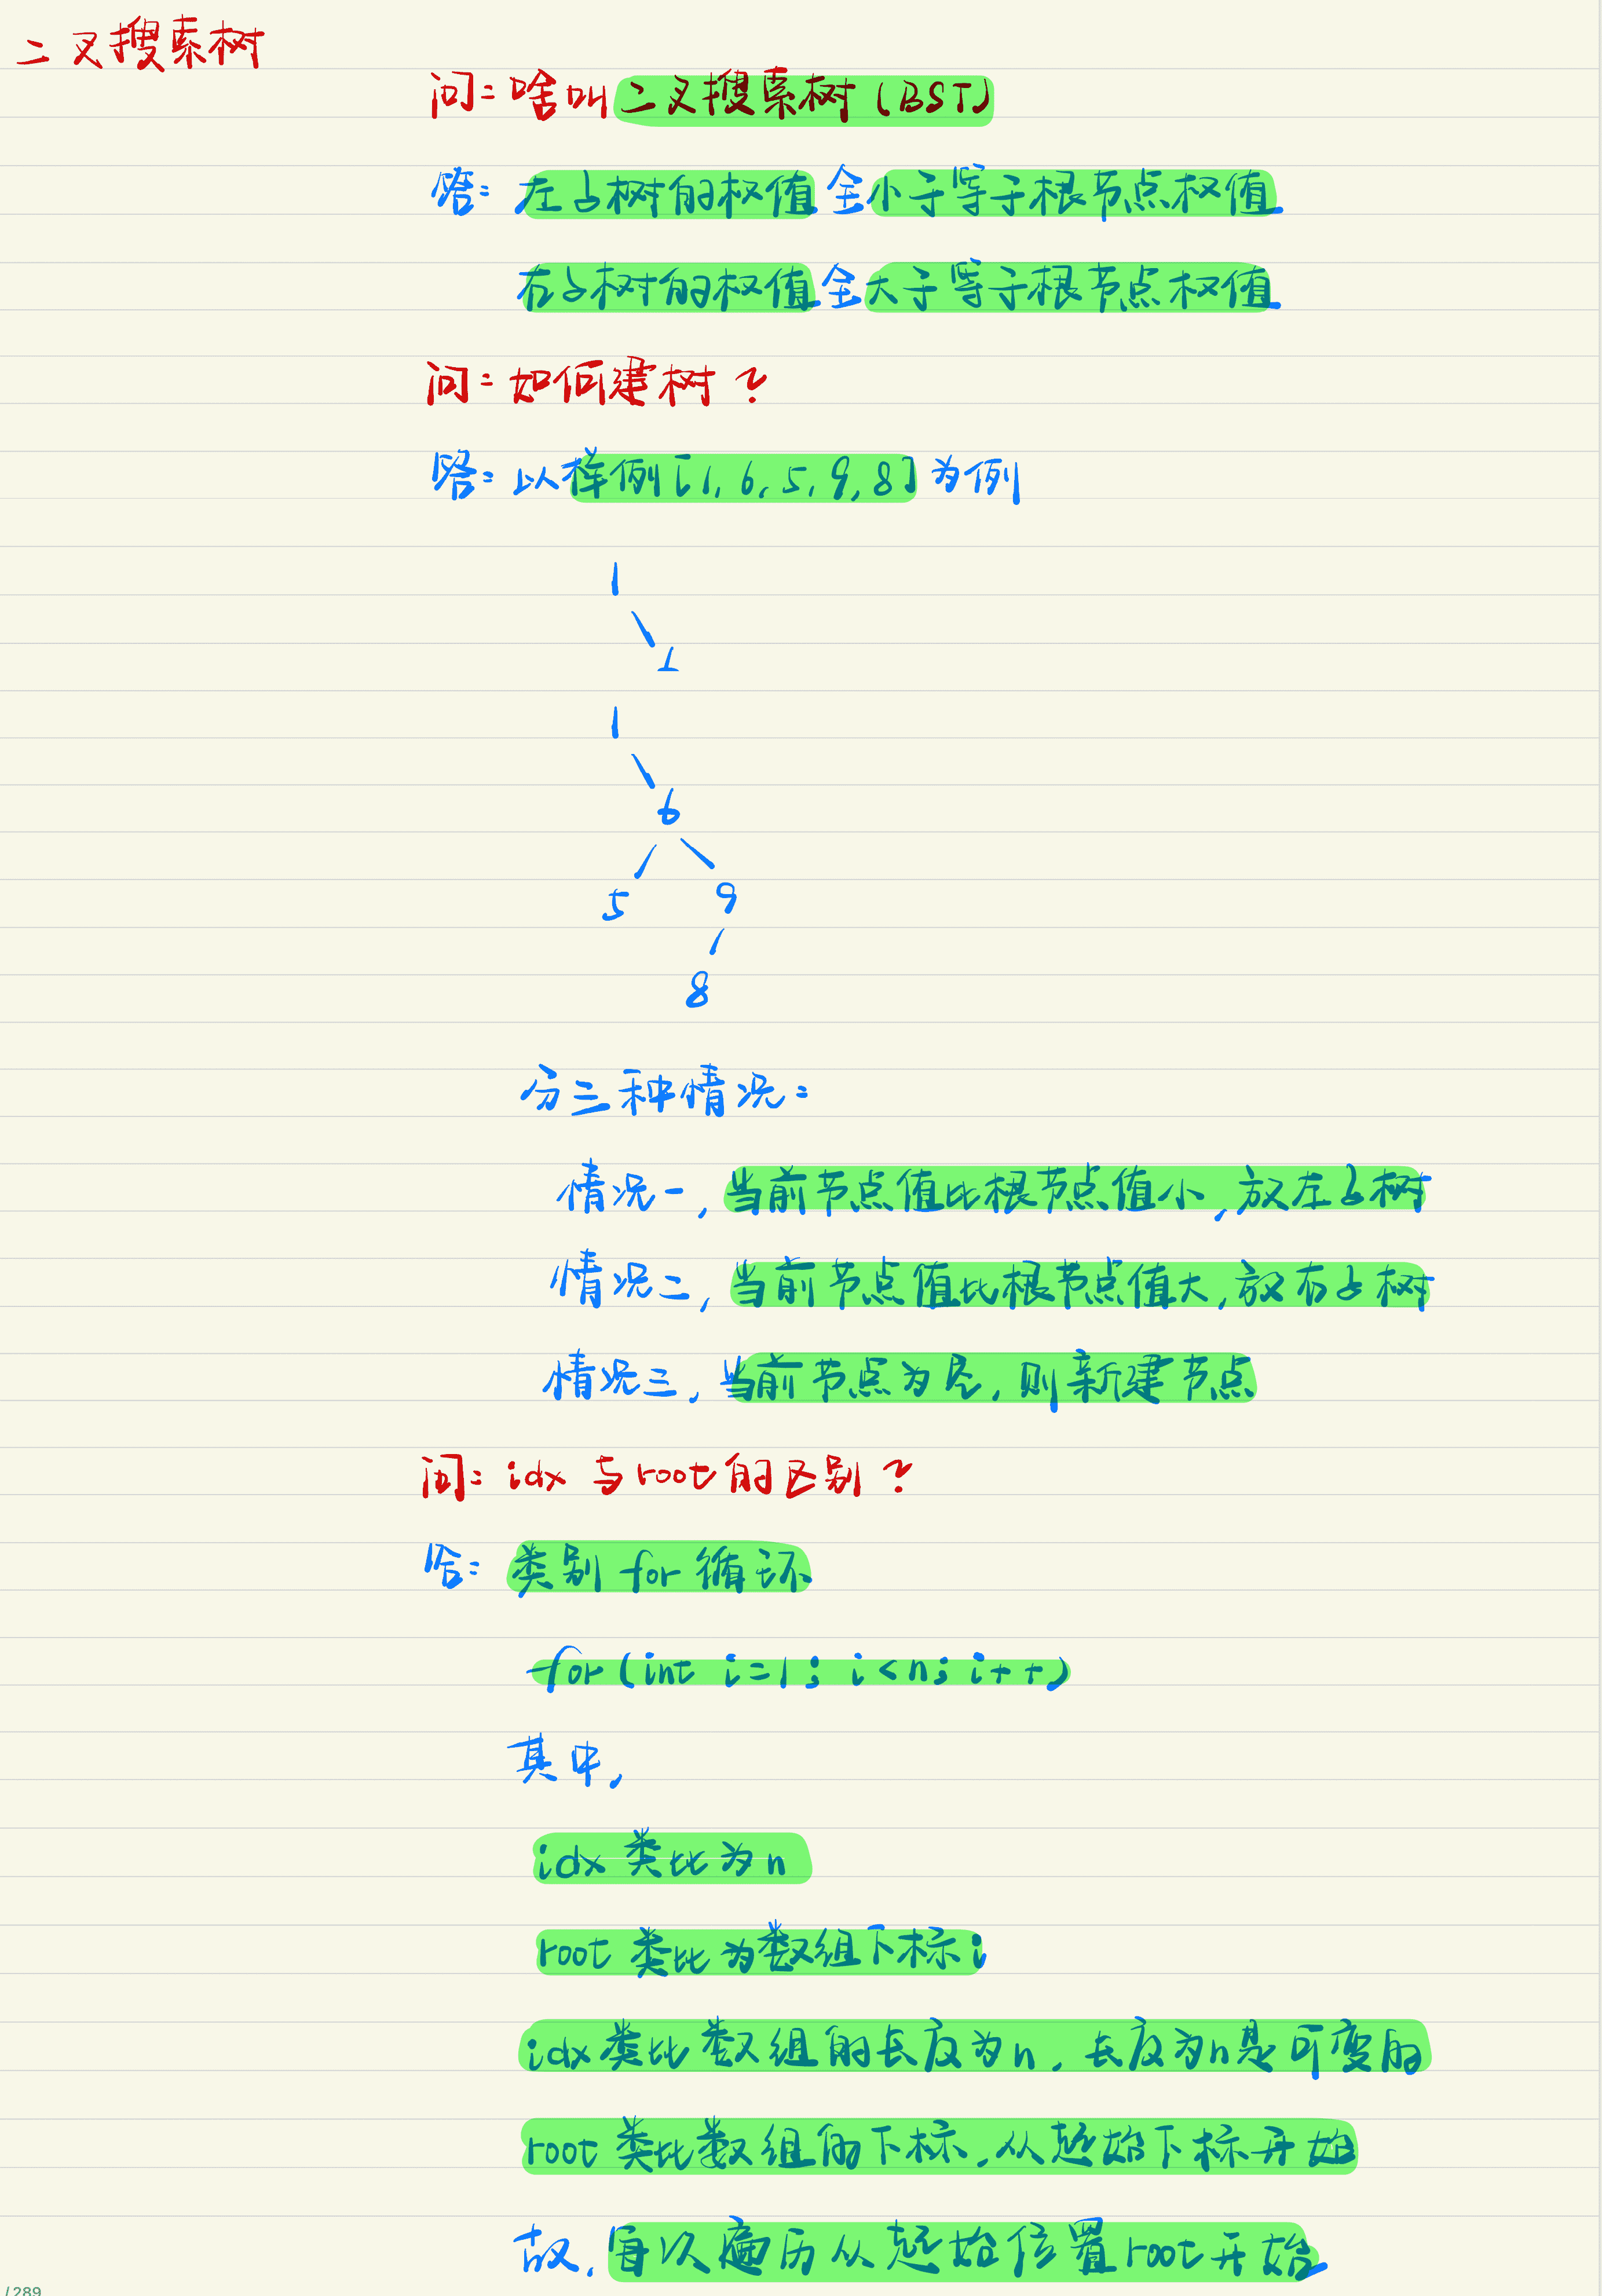 二叉搜索树
问：啥叫二叉搜索树（BST）
答：左子树的权值全小于等于根节点权值
右子树的权值全大于等于根节点权值
问：如何建树？
答：以样例[1,6,5,9,8]为例
1
⊥
1
6
5 9
8
分三种情况：
情况一，当前节点值比根节点值小，放左子树
情况二，当前节点值比根节点值大，放右子树
情况三，当前节点为尾，则新建节点
问：idx与root的区别？
答：类别for循环
for(int i=1; i<n; i++)
其中，
idx类比为n
root类比为数组下标i
idx类比数组的长度为n，长度为n是可变的
root类比数组的下标，从起始下标开始
故，每次遍历从起始位置root开始
/289